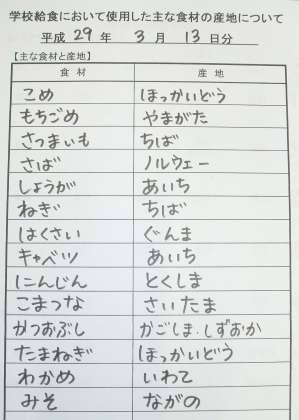 学校給食において使用した主な食材の産地について
平成 29 年 3 月 13 日分
【主な食材と産地】
食材 産地
こめ ほっかいどう
もちごめ やまがた
さつまいも ちば
さば ノルウェー
しょうが あいち
ねぎ ちば
はくさい ぐんま
キャベツ あいち
にんじん とくしま
こまつな さいたま
かつおぶし かごしま.しずおか
たまねぎ ほっかいどう
わかめ いわて
みそ ながの